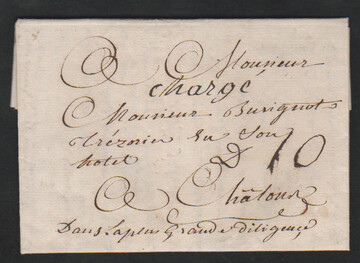 A Monsieur
chargé
Monsieur Burignot
trézorier en son
hotel
10
A Châlons
Dans la plus Grande diligence